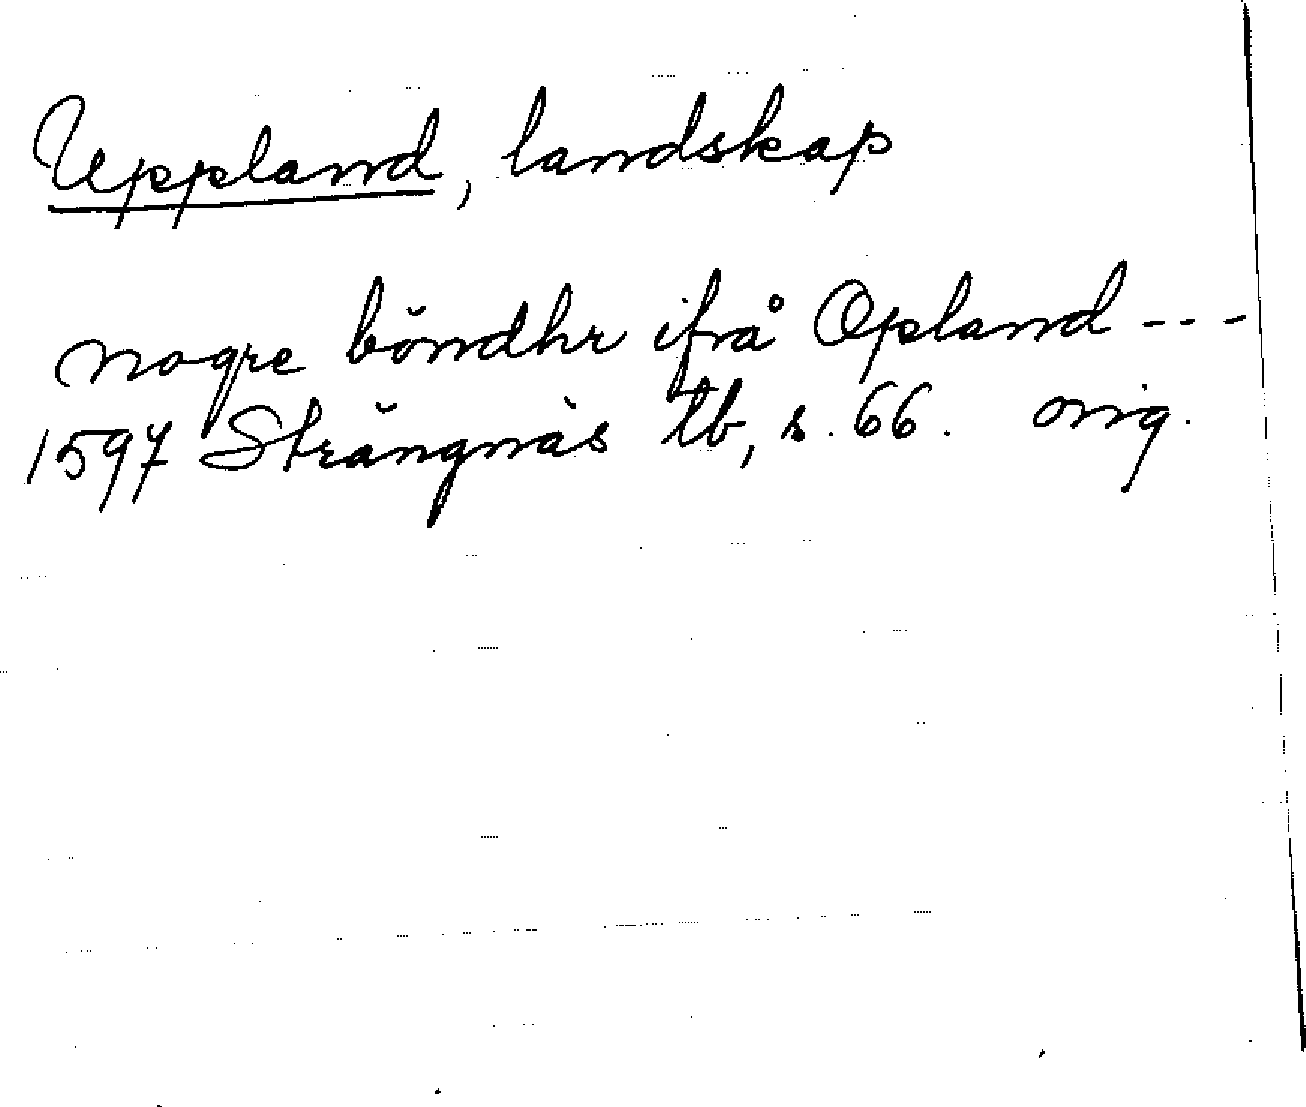 Uppland, landskap
nogre böndhr ifrå Opland ---
1597 Strängnäs tb, s. 66. orig.